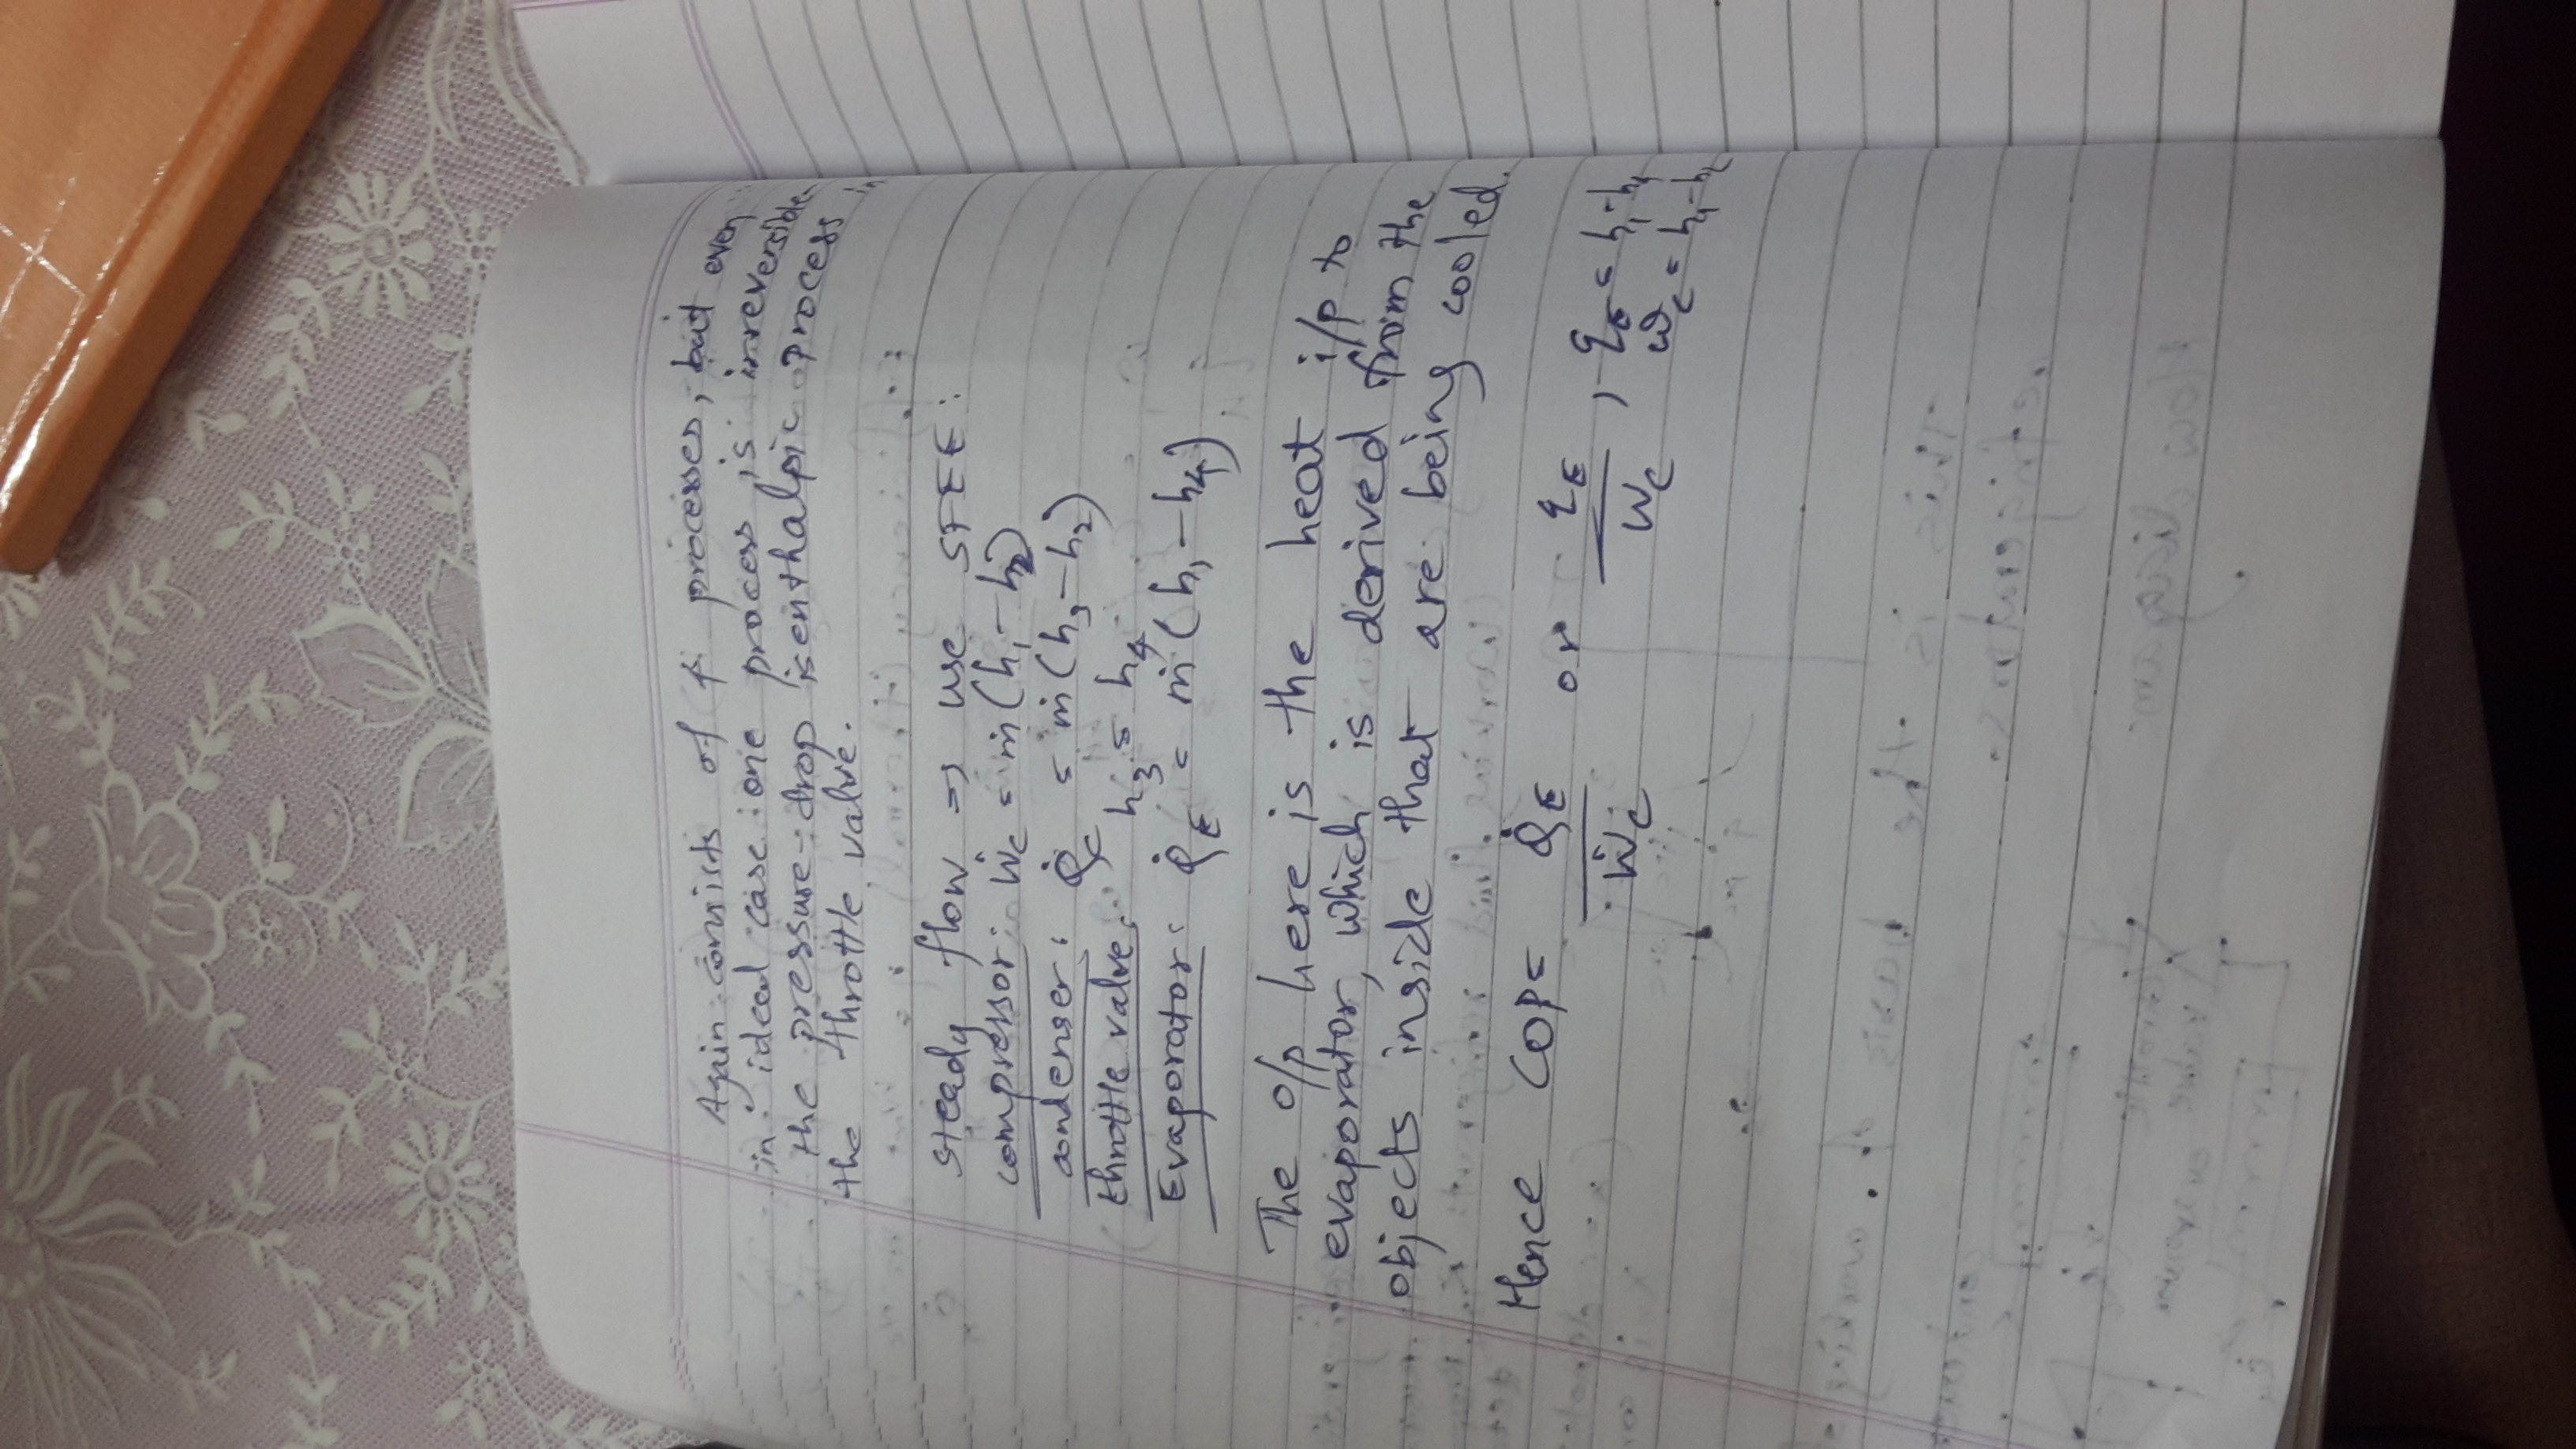 Again consists of 4 processes, but even
in ideal case one process is irreversible-
the pressure-drop isenthalpic process in
the throttle valve.
steady flow ⇒ use SFEE:
compressor: Ẇc = ṁ(h₁-h₂)
condenser: Q̇c = ṁ(h₃-h₂)
throttle valve: h₃ = h₄
Evaporator: Q̇E = ṁ(h₁-h₄).
The o/p here is the heat i/p to
evaporator, which is derived from the
objects inside that are being cooled.
Hence COP = Q̇E/Ẇc or qE/wc, qE = h₁-h₄
wc = h₁-h₂